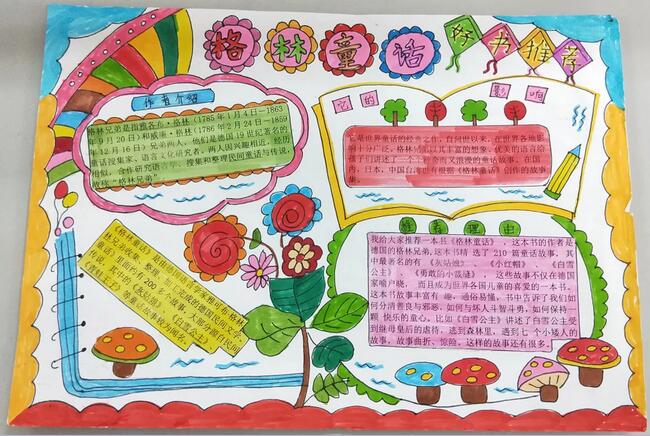 格林童话
好书推荐
作者介绍
格林兄弟是指雅各布·格林(1785年1月4日—1863
年9月20日)和威廉·格林(1786年2月24日—1859
年12月16日)兄弟两人,他们是德国19世纪著名的
童话搜集家、语言文化研究者。两人因兴趣相近,经历
相似,合作研究语言学、搜集和整理民间童话与传说,
故称“格林兄弟”。
它的
影响
它是世界童话的经典之作,自问世以来,在世界各地影
响十分广泛。格林
以其丰富的想象、优美的语言给
孩子们讲述了一个个神奇而又浪漫的童话故事。在国
内,日本,中国台湾
都有根据《格林童话》创作的故事
集。
《格林童话》
林兄弟收集、整理、加工完成的德国民间文学。
童话
里面约有200多个故事,大部分源自民间
传说,其中的《灰姑娘》、《白雪公主》、
《青蛙王子》等童话故事较为闻名。
推荐理由
我给大家推荐一本书《格林童话》,这本书的作者是
德国的格林兄弟,这本书精 选了 210 篇童话故事。其
中最著名的有 《灰姑娘》、 《小红帽》、 《白雪
公主》、 《勇敢的小裁缝》、 这些故事不仅在德国
家喻户晓, 而且成为世界各国儿童的喜爱的一本书。
这本书故事丰富有 趣,通俗易懂,书中告诉了我们如
何分清善良与邪恶,如何与坏人斗智斗勇,如何保持一
颗 快乐的童心。比如《白雪公主》讲述了白雪公主受
到继母皇后的虐待,逃到森林里,遇到七 个小矮人的
故事,故事曲折、惊险,这样的故事还有很多。